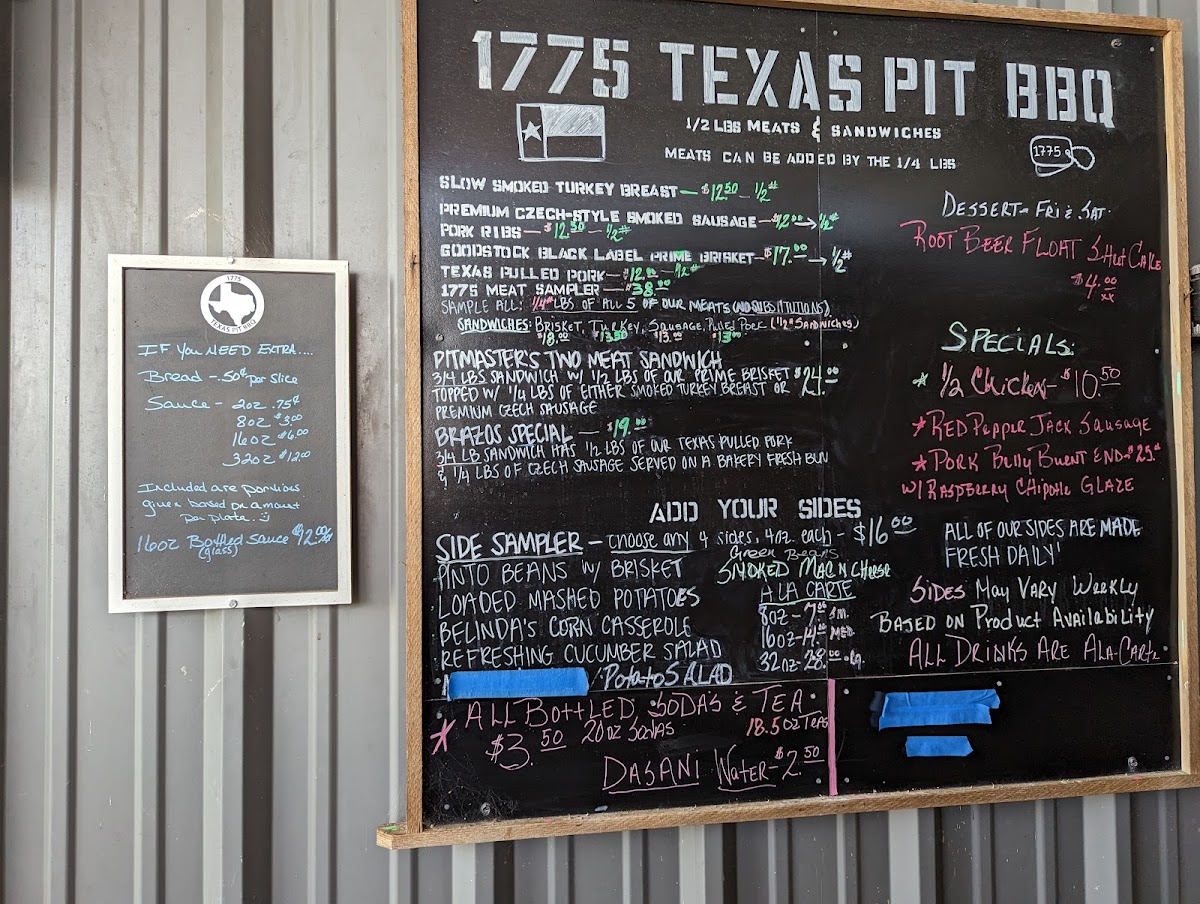 1775
TEXAS PIT BBQ
IF YOU NEED EXTRA....
Bread - .50¢ per slice
Sauce - 2oz .75¢
8oz $3.00
16oz $6.00
32oz $12.00
Included are portions
given based on amount
per plate.
16oz Bottled Sauce
(glass)
1775 TEXAS PIT BBQ
1/2 LBS MEATS & SANDWICHES
MEATS CAN BE ADDED BY THE 1/4 LBS
1775
SLOW SMOKED TURKEY BREAST — $12.50 - 1/2#
PREMIUM CZECH-STYLE SMOKED SAUSAGE - $12.00 → 1/2#
PORK RIBS - $12.50 - 1/2#
GOODSTOCK BLACK LABEL PRIME BRISKET - $17.00 → 1/2#
TEXAS PULLED PORK - $12.00 - 1/2#
1775 MEAT SAMPLER - $38.00
SAMPLE ALL: 1/4# LBS OF ALL 5 OF OUR MEATS (NO SUBSTITUTIONS)
SANDWICHES: BRISKET, TURKEY, SAUSAGE, PULLED PORK (1/2# SANDWICHES)
$18.00 $13.50 $13.00 $13.00
PITMASTER'S TWO MEAT SANDWICH
3/4 LBS SANDWICH W/ 1/2 LBS OF OUR PRIME BRISKET $24.00
TOPPED W/ 1/4 LBS OF EITHER SMOKED TURKEY BREAST OR
PREMIUM CZECH SAUSAGE
BRAZOS SPECIAL — $19.00
3/4 LB SANDWICH HAS 1/2 LBS OF OUR TEXAS PULLED PORK
& 1/4 LBS OF CZECH SAUSAGE SERVED ON A BAKERY FRESH BUN
DESSERT - FRI & SAT.
ROOT BEER FLOAT
$4.00
xx
SPECIALS:
* 1/2 Chicken - $10.50
* RED Pepper Jack Sausage
* PORK Belly Burnt END
W/ RASPBERRY Chipotle GLAZE
ADD YOUR SIDES
SIDE SAMPLER - choose any 4 sides, 4oz. each - $16.00
Green Beans
PINTO BEANS W/ BRISKET SMOKED MAC N CHEESE
LOADED MASHED POTATOES A LA CARTE
BELINDA'S CORN CASSEROLE 8oz - 7.00 SM.
REFRESHING CUCUMBER SALAD 16oz - 14.00 MED
Potato SALAD 32oz - 28.00 Lg.
ALL OF OUR SIDES ARE MADE
FRESH DAILY!
SIDES MAY VARY WEEKLY
BASED ON PRODUCT AVAILABILITY
ALL DRINKS ARE ALA-CARTE
* ALL BOTTLED, SODA'S & TEA
$3.50 20oz SODAS 18.5oz TEAS
DASANI Water - $2.50